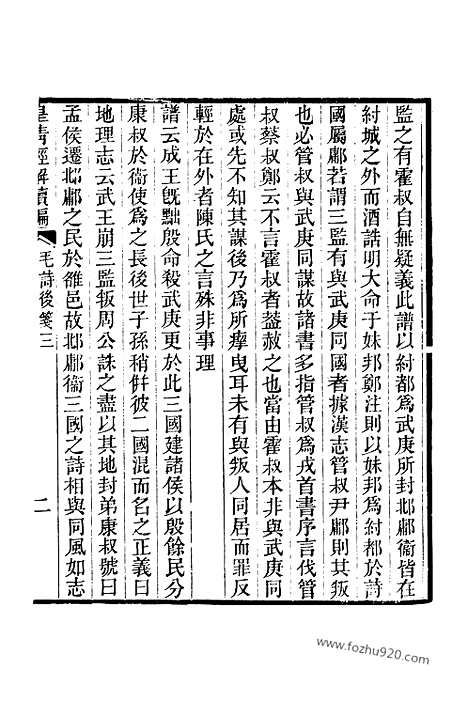 監之有霍叔自無疑義此譜以紂都爲武庚所封邶鄘衞皆在
紂城之外而酒誥明大命于妹邦鄭注則以妹邦爲紂都於詩
國屬鄘若謂三監有與武庚同國者據漢志管叔尹鄘則其叛
也必管叔與武庚同謀故諸書多指管叔爲戎首書序言伐管
叔蔡叔鄭云不言霍叔者蓋赦之也當由霍叔本非與武庚同
處或先不知其謀後乃爲所瘈曳耳未有與叛人同居而罪反
輕於在外者陳氏之言殊非事理
譜云成王旣黜殷命殺武庚更於此三國建諸侯以殷餘民分
康叔於衞使爲之長後世子孫稍倂彼二國混而名之正義曰
地理志云武王崩三監叛周公誅之盡以其地封弟康叔號曰
孟侯遷邶鄘之民於雒邑故邶鄘衞三國之詩相與同風如志
皇清經解續編
毛詩後箋三
二
www.fozhu920.com